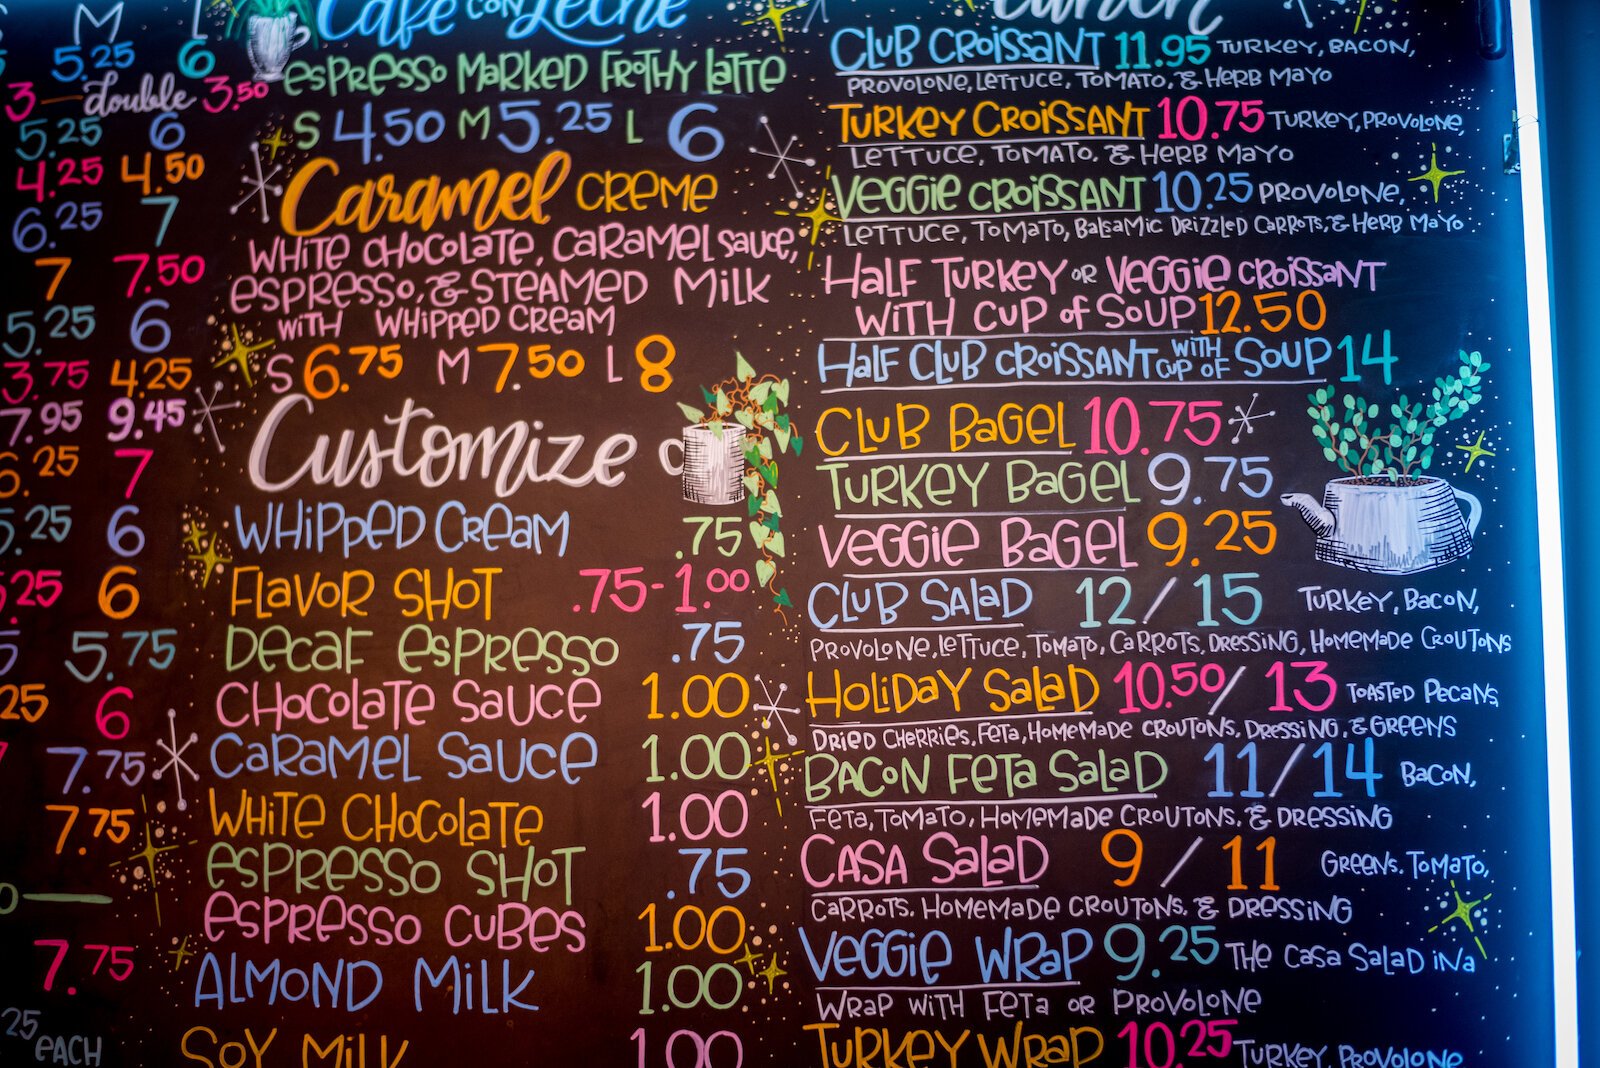 M L
5.25 6
3 — double 3.50
5.25 6
4.25 4.50
6.25 7
7 7.50
5.25 6
3.75 4.25
7.95 9.45
6.25 7
5.25 6
25 6
5.75
25 6
7.75
7.75
7.75
25 EACH
Café con Leche
ESPRESSO MARKED FROTHY LATTE
S 4.50 M 5.25 L 6
Caramel CREME
WHITE CHOCOLATE, CARAMEL SAUCE,
ESPRESSO, & STEAMED MILK
WITH WHIPPED CREAM
S 6.75 M 7.50 L 8
Customize
WHIPPED CREAM .75
FLAVOR SHOT .75-1.00
DECAF ESPRESSO .75
CHOCOLATE SAUCE 1.00
CARAMEL SAUCE 1.00
WHITE CHOCOLATE 1.00
ESPRESSO SHOT .75
ESPRESSO CUBES 1.00
ALMOND MILK 1.00
SOY MILK 1.00
Lunch
CLUB CROISSANT 11.95 TURKEY, BACON,
PROVOLONE, LETTUCE, TOMATO, & HERB MAYO
TURKEY CROISSANT 10.75 TURKEY, PROVOLONE,
LETTUCE, TOMATO, & HERB MAYO
VEGGIE CROISSANT 10.25 PROVOLONE,
LETTUCE, TOMATO, BALSAMIC DRIZZLED CARROTS, & HERB MAYO
HALF TURKEY OR VEGGIE CROISSANT
WITH CUP OF SOUP 12.50
HALF CLUB CROISSANT WITH CUP OF SOUP 14
CLUB BAGEL 10.75
TURKEY BAGEL 9.75
VEGGIE BAGEL 9.25
CLUB SALAD 12/15 TURKEY, BACON,
PROVOLONE, LETTUCE, TOMATO, CARROTS, DRESSING, HOMEMADE CROUTONS
HOLIDAY SALAD 10.50/13 TOASTED PECANS,
DRIED CHERRIES, FETA, HOMEMADE CROUTONS, DRESSING, & GREENS
BACON FETA SALAD 11/14 BACON,
FETA, TOMATO, HOMEMADE CROUTONS, & DRESSING
CASA SALAD 9/11 GREENS, TOMATO,
CARROTS, HOMEMADE CROUTONS, & DRESSING
VEGGIE WRAP 9.25 THE CASA SALAD IN A
WRAP WITH FETA OR PROVOLONE
TURKEY WRAP 10.25 TURKEY, PROVOLONE